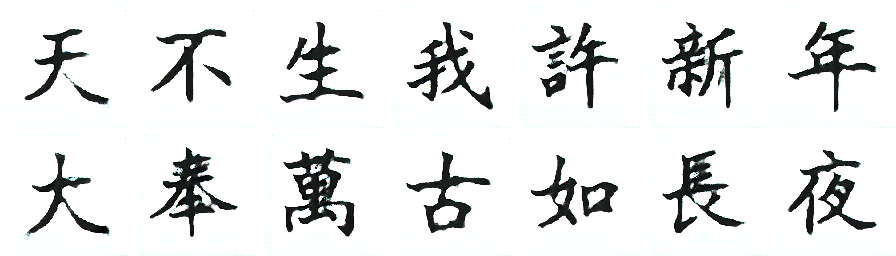 天不生我許新年
大奉萬古如長夜